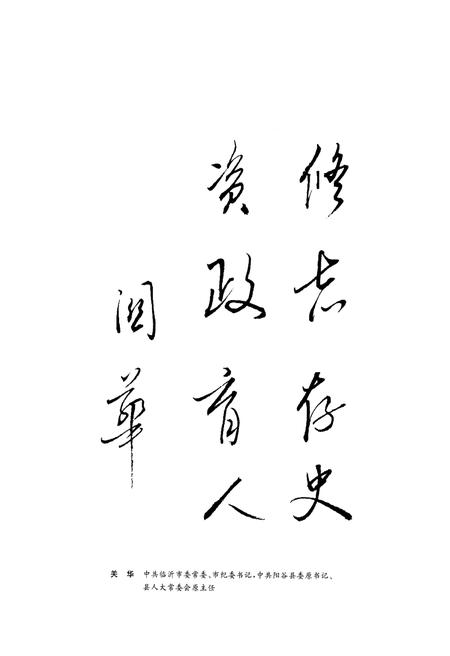 修志存史
资政育人
関華
关　华　中共临沂市委常委、市纪委书记，中共阳谷县委原书记、
县人大常委会原主任